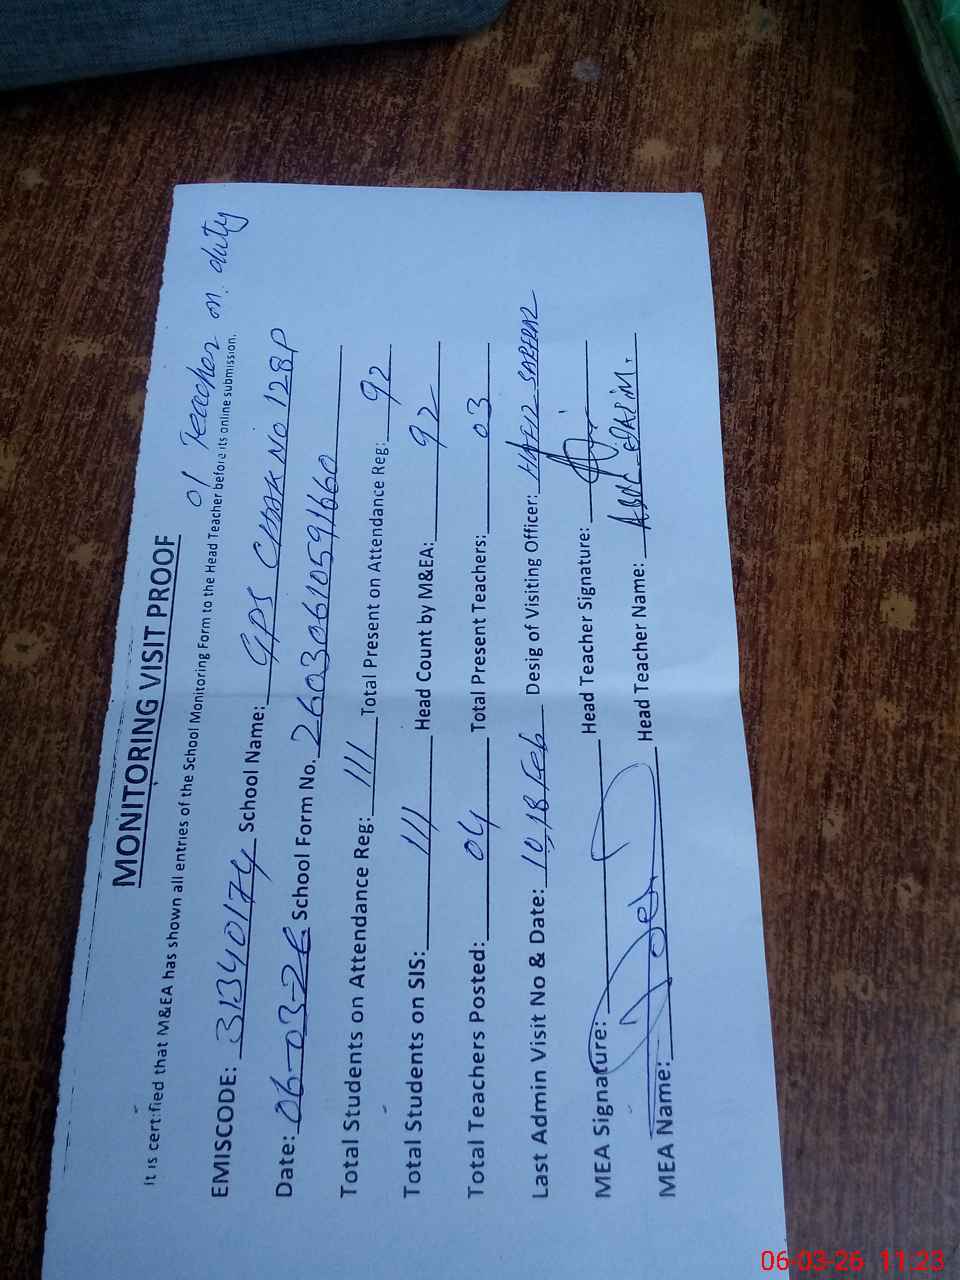 MONITORING VISIT PROOF
01 Teacher on duty
It is certified that M&EA has shown all entries of the School Monitoring Form to the Head Teacher before its online submission.
EMISCODE: 31340174 School Name: GPS CHAK NO 128P
Date: 06-03-26 School Form No. 26030610591660
Total Students on Attendance Reg: 111 Total Present on Attendance Reg: 92
Total Students on SIS: 111 Head Count by M&EA: 92
Total Teachers Posted: 04 Total Present Teachers: 03
Last Admin Visit No & Date: 10,18 Feb Desig of Visiting Officer: HAFIZ
MEA Signature: Head Teacher Signature:
MEA Name: Head Teacher Name:
06-03-26 11:23